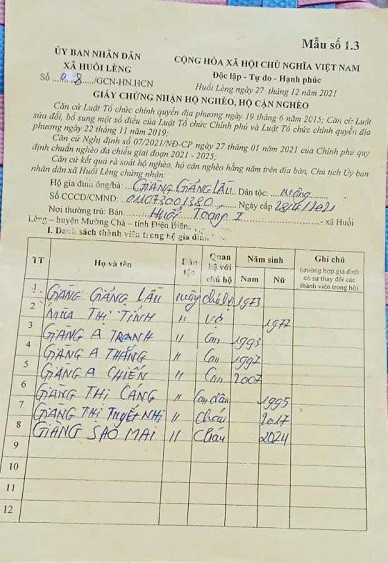 Mẫu số 1.3
ỦY BAN NHÂN DÂN
XÃ HUỔI LÈNG
CỘNG HÒA XÃ HỘI CHỦ NGHĨA VIỆT NAM
Độc lập - Tự do - Hạnh phúc
Số 08/GCN-HN.HCN
Huổi Lèng ngày 27 tháng 12 năm 2021
GIẤY CHỨNG NHẬN HỘ NGHÈO, HỘ CẬN NGHÈO
Căn cứ Luật Tổ chức chính quyền địa phương ngày 19 tháng 6 năm 2015; Căn cứ Luật
sửa đổi, bổ sung một số điều của Luật Tổ chức Chính phủ và Luật Tổ chức chính quyền địa
phương ngày 22 tháng 11 năm 2019;
Căn cứ Nghị định số 07/2021/NĐ-CP ngày 27 tháng 01 năm 2021 của Chính phủ quy
định chuẩn nghèo đa chiều giai đoạn 2021 - 2025;
Căn cứ kết quả rà soát hộ nghèo, hộ cận nghèo hằng năm trên địa bàn, Chủ tịch Ủy ban
nhân dân xã Huổi Lèng chứng nhận:
Hộ gia đình ông/bà: GIÀNG GIÀNG LẦU Dân tộc:
Số CCCD/CMND: Ngày cấp
Nơi thường trú: Bản Huổi Toóng I - xã Huổi
Lèng – huyện Mường Chà – tỉnh Điện Biên.
1. Danh sách thành viên trong hộ gia đình
TT Họ và tên Dân tộc Quan hệ với chủ hộ Năm sinh Nam Nữ Ghi chú (trường hợp gia đình có sự thay đổi các thành viên trong hộ)
1 GIÀNG GIÀNG LẦU Chủ hộ 1973
2 MÙA THỊ TÍNH " Vợ 1977
3 GIÀNG A TRANH " Con 1993
4 GIÀNG A THẮNG " Con 1997
5 GIÀNG A CHIẾN " Con 2007
6 GIÀNG THỊ CÁNG " Con dâu 1995
7 GIÀNG THỊ TUYẾT NHI " Cháu 2017
8 GIÀNG SAO MAI " Cháu 2024
9
10
11
12